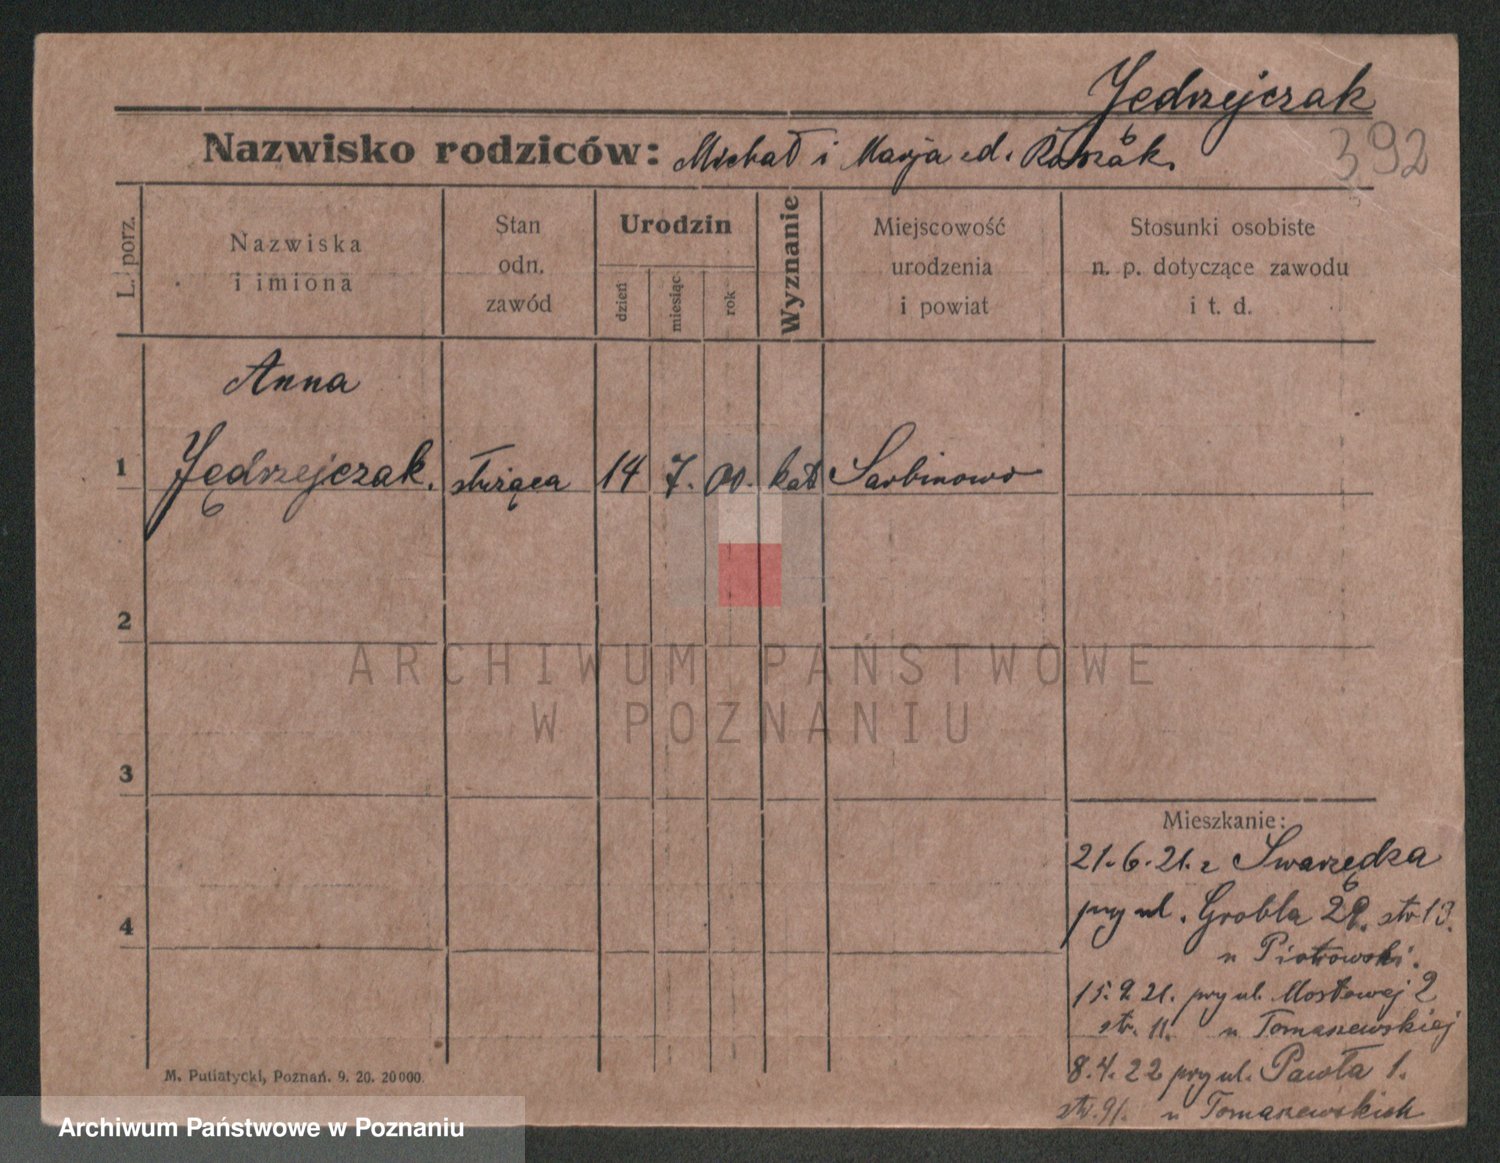 Jędrzejczak
392
Nazwisko rodziców: Michał i Marja
L. porz.
Nazwiska
i imiona
Stan
odn.
zawód
Urodzin
dzień
miesiąc
rok
Wyznanie
Miejscowość
urodzenia
i powiat
Stosunki osobiste
n. p. dotyczące zawodu
i t. d.
Anna
1 Jędrzejczak. służąca 14 7. 00. kat Sarbinowo
2
ARCHIWUM PAŃSTWOWE
W POZNANIU
3
Mieszkanie:
21.6.21. z Swarzędza
4
przy ul. Grobla str 13.
u Piotrowski.
15.9.21. przy ul. Mostowej 2
str. 11. u Tomaszewskiej
8.4.22 przy ul. Pawła 1.
str. 91. u Tomaszewskich
M. Putiatycki, Poznań. 9. 20. 20000.
Archiwum Państwowe w Poznaniu